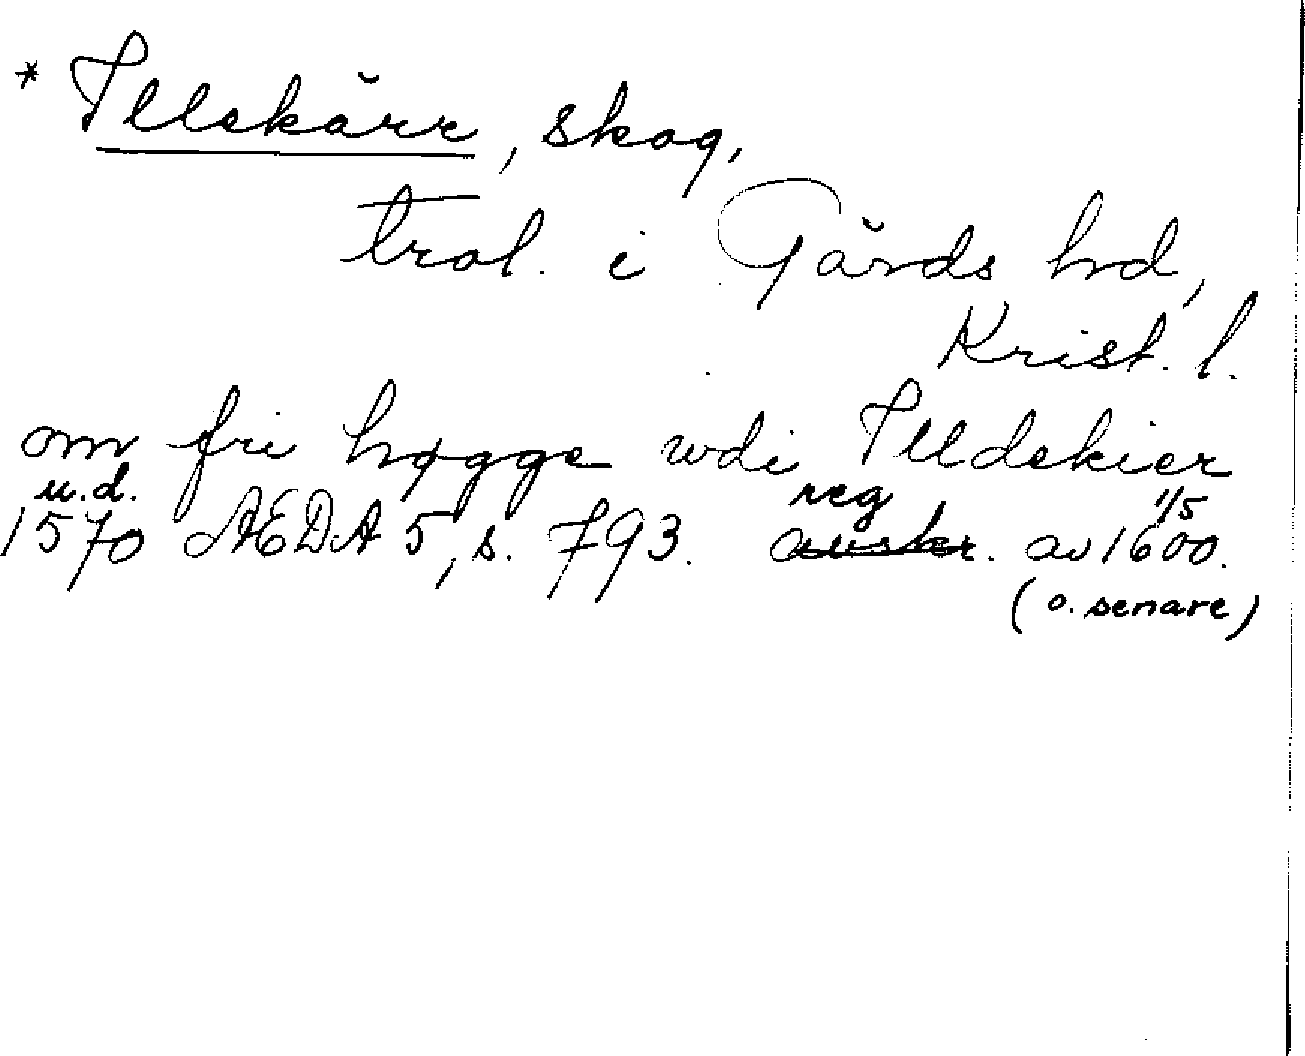 * Illskärr, skog,
trol. i Gärds hd,
Krist. l.
om fri høgge wdi Illdskier
u.d. reg 1/5
1570 AEDA 5, s. 793. avskr. av 1600.
(o. senare)